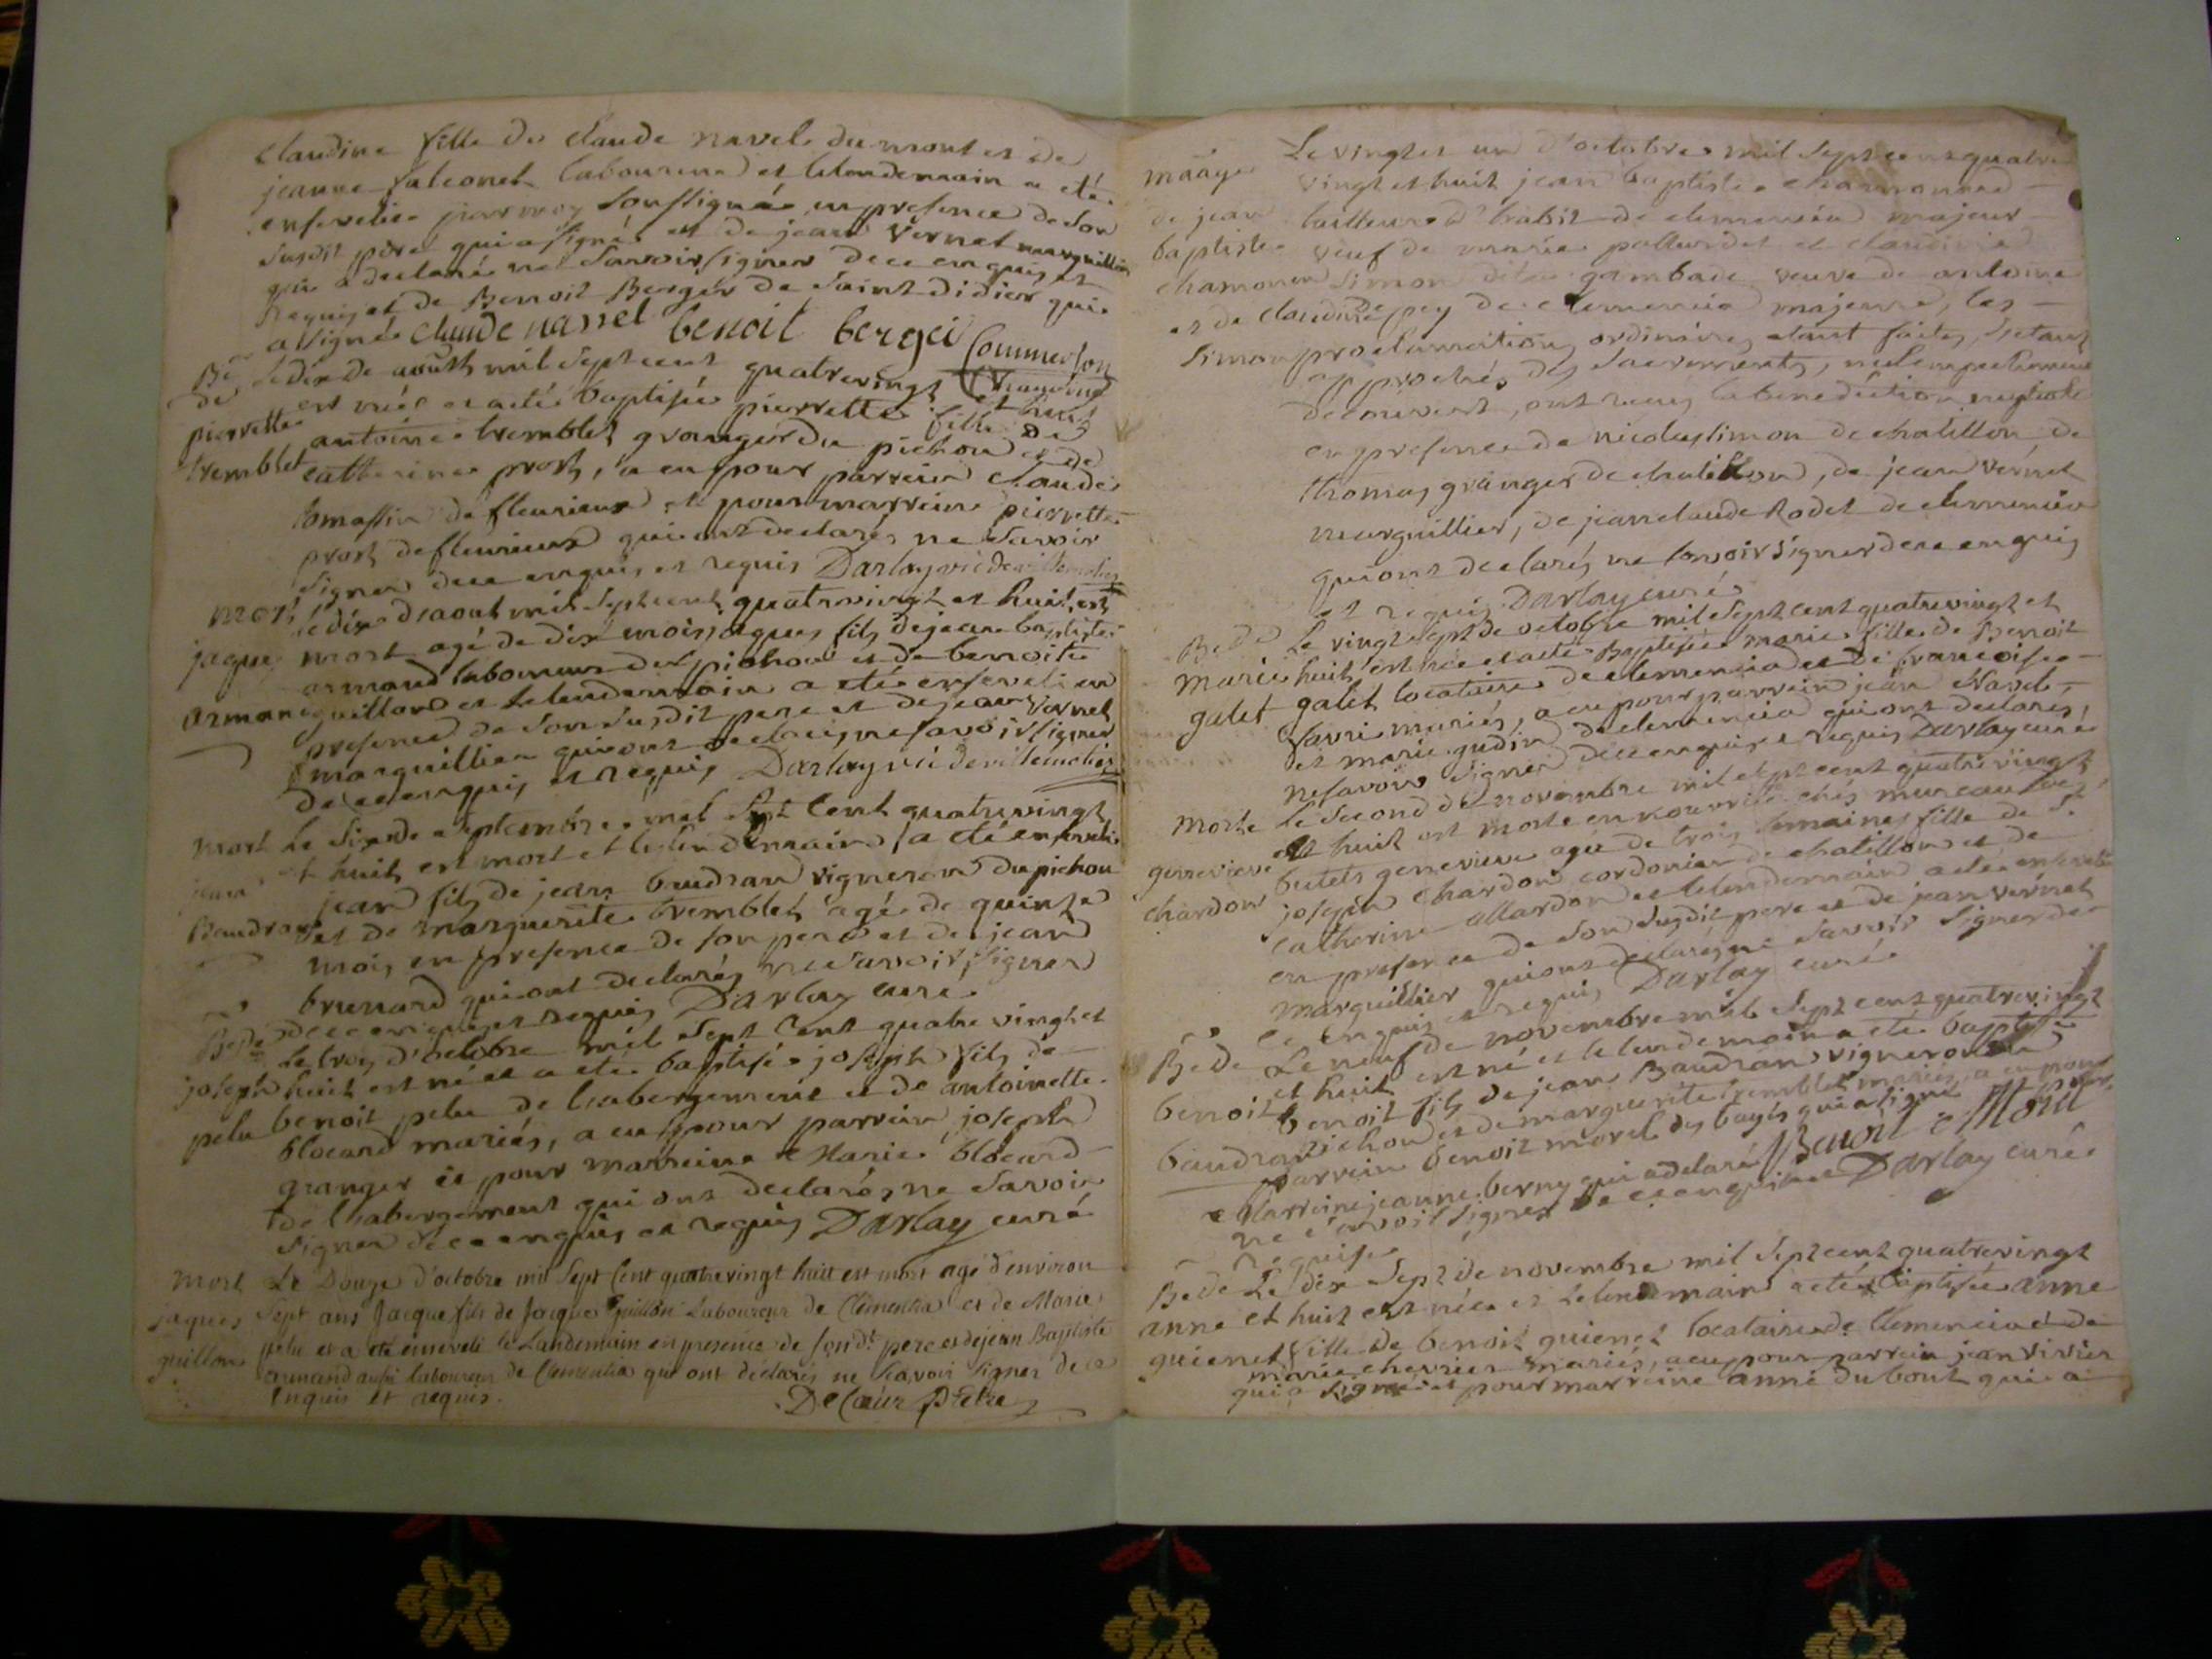 claudine fille de claude navel du mont et de
jeanne falconet laboureur et lelendemain a eté
ensevelie par moy soussigné en presence de son
susdit pere qui a signé et de jean vernet marguillier
qui a declaré ne savoir signer de ce enquis et
requis et de Benoit Berger de saint didier qui
a signé claude navel benoit berger Commerson
Bê de pierrette tremblet
le dix de aoust mil sept cent quatrevingt et huit
est née et a eté baptisée pierrette fille de
antoine tremblet granger du pichou et de
catherine prost, a eu pour parrein claude
tomassin de fleurieux et pour marreine pierrette
prost de fleurieux qui ont declarés ne savoir
signer de ce enquis et requis Darlay
mort jaques armand
le dix d'aout mil sept cent quatrevingt et huit, est
mort agé de dix mois jaques fils de jean baptiste
armand laboureur du pichou et de benoite
guillon et lelendemain a eté enseveli en
presence de son susdit pere et de jean vernet
marguillier qui ont declarés ne savoir signer
de ce enquis et requis Darlay
mort jean Baudran
Le six de septembre mil sept cent quatrevingt
et huit est mort et lelendemain a eté enseveli
jean fils de jean baudran vigneron du pichou
et de marguerite tremblet agé de quinse
mois, en presence de son pere et de jean
brunard qui ont declarés ne savoir signer
de ce enquis et requis Darlay curé
Bê de joseph pelu
Le trois d'octobre mil sept cent quatre vingt et
huit est né et a eté baptisé joseph fils de
benoit pelu de l'abergement et de antoinette
blocard mariés, a eu pour parrein joseph
granger et pour marreine Marie blocard
de l'abergement qui ont declarés ne savoir
signer de ce enquis et requis Darlay curé
mort jaques guillon
Le Douze d'octobre mil sept cent quatrevingt huit est mort agé d'environ
sept ans Jacque fils de Jacque Guillon Laboureur de Clémentia et de Marie
pelu et a eté enseveli le Landemain en presence de son dt pere et de jean Baptiste
armand aussi laboureur de Clementia qui ont déclarés ne sçavoir signer de ce
enquis et requis.
Delaur Prêtre
mâage de jean baptiste chamonard et de claudine simon
Le vingt et un d'octobre mil sept cent quatre
vingt et huit jean baptiste chamonard
tailleur d'habit de clemencia majeur
veuf de marie et claudine
simon de la gambade veuve de antoine
pey de clemencia majeure, les
proclamations ordinaires etant faites, s'etant
approchés des sacrements, nul empechement
decouvert, ont reçus la benediction nuptiale
en presence de nicolas simon de chatillon de
thomas granger de chatillon, de jean vernet
marguillier, de jean claude Rodet de clemencia
qui ont declarés ne savoir signer de ce enquis
et requis Darlay curé
Bê de marie galet
Le vingt sept de octobre mil sept cent quatrevingt et
huit, est née et a eté Baptisée marie fille de Benoit
galet locataire de clemencia et de francoise
mariés, a eu pour parrein jean Navel
et marie gudin de clemencia qui ont declarés,
ne savoir signer de ce enquis et requis Darlay curé
Morte genevieve chardon
le second de novembre mil sept cent quatrevingt
et huit est morte en nourrice chés
genevieve agée de trois semaines fille de
joseph chardon cordonier de chatillon et de
catherine allardon et lelendemain a eté ensevelie
en presence de son susdit pere et de jean vernet
marguillier qui ont declarés ne savoir signer de
ce enquis et requis Darlay curé
Bê de benoit baudran
Le neuf de novembre mil sept cent quatrevingt
et huit est né et lelendemain a eté baptisé
benoit fils de jean Baudran vigneron du
pichou et de marguerite tremblet mariés, a eu pour
parrein benoit morel des bages qui a signé Benoit Morel
Marreine jeanne berny qui a declaré
ne savoir signer de ce enquise et Darlay curé
requise
Bê de anne quienet
Le dix sept de novembre mil sept cent quatrevingt
et huit est née et lelendemain a eté baptisée anne
fille de benoit quienet locataire de Clemencia et de
marie chevrier mariés, a eu pour parrein jean vivier
qui a signé et pour marreine anne dubout qui a